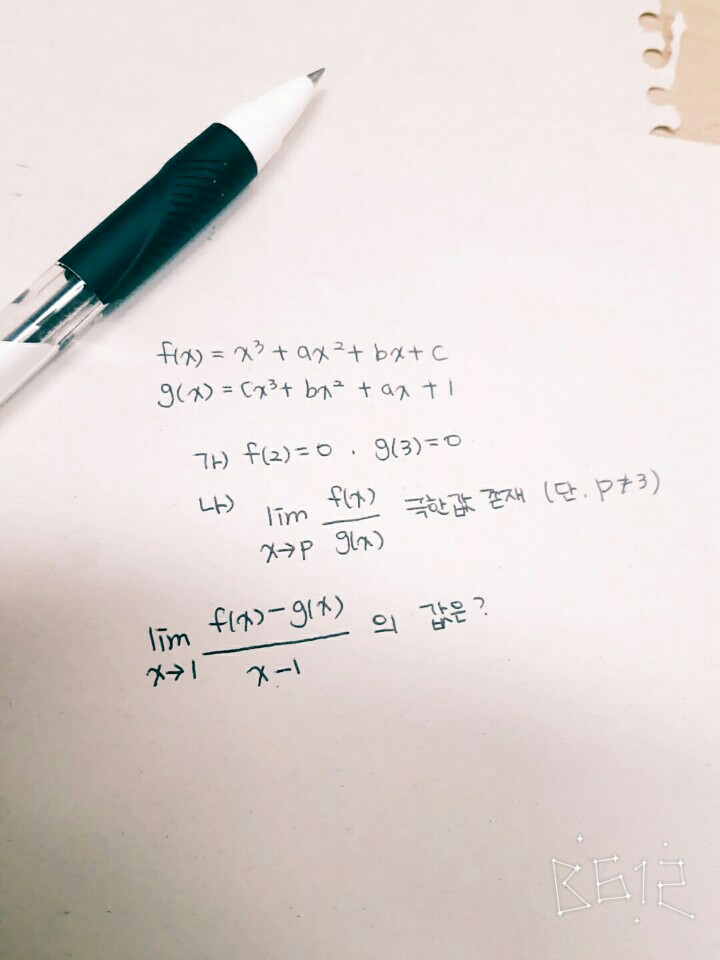 f(x) = x³ + ax² + bx + c
g(x) = cx³ + bx² + ax + 1
가) f(2)=0 . g(3)=0
나) lim x→p f(x)/g(x) 극한값 존재 (단. p≠3)
lim x→1 (f(x)-g(x))/(x-1) 의 값은?
B612